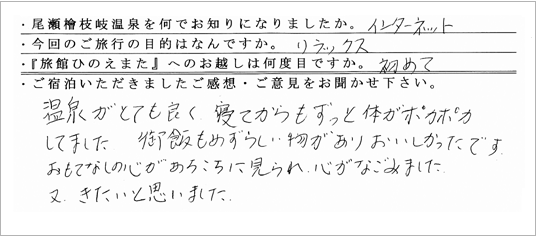 ・尾瀬檜枝岐温泉を何でお知りになりましたか。インターネット
・今回のご旅行の目的はなんですか。リラックス
・『旅館ひのえまた』へのお越しは何度目ですか。初めて
・ご宿泊いただきましたご感想・ご意見をお聞かせ下さい。
温泉がとても良く、寝てからもずっと体がポカポカ
してました 御飯もめずらしい物があり おいしかったです
おもてなしの心があちこちに見られ、心がなごみました
又、きたいと思いました。